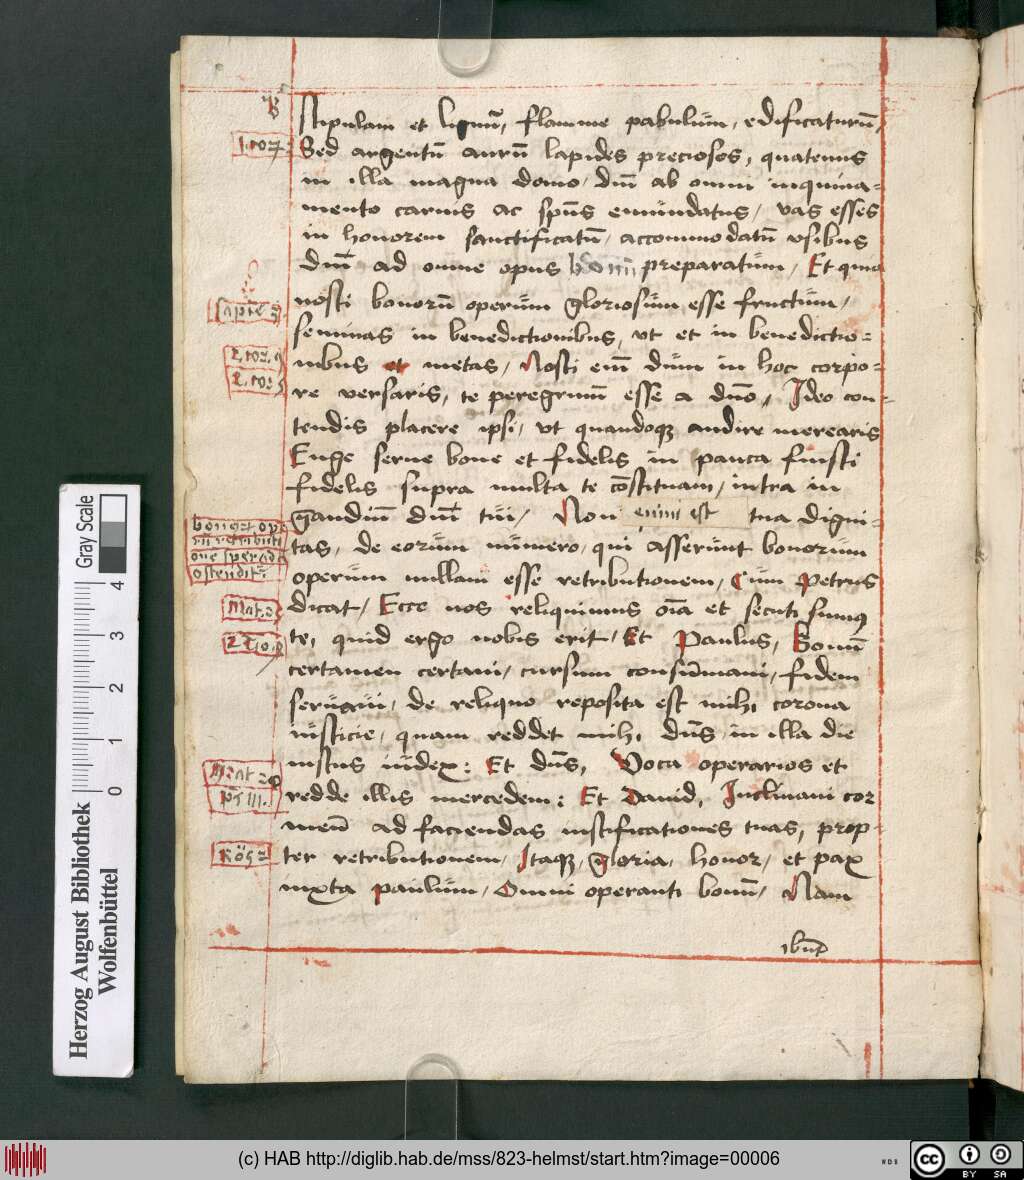 Stipulam et lignū, flamme pabulum, edificaturū,
Sed argentū aurū lapides preciosos, quatenus
in illa magna domo, dnī ab omni inquina=
mento carnis ac spūs emundatus, vas esses
in honorem sanctificatū, accommodatū vsibus
dnī ad omne opus bonū preparatum, Et quia
nosti bonorū operum gloriosum esse fructum,
seminas in benedictionibus, vt et in benedictio=
nibus et metas, Nosti em̄ dum in hoc corpo=
re versaris, te peregrinū esse a dn̄o, Ideo con=
tendis placere ipsi, vt quandoqꝫ audire merearis
Euge serue bone et fidelis in pauca fuisti
fidelis supra multa te cōstituam, intra in
gaudiū dnī tui, Non enim est tua digni=
tas, de eorum numero, qui asserunt bonorum
operum nullam esse retributionem, Cum Petrus
dicat, Ecce nos reliquimus oīa et secuti sumus
te, quid ergo nobis erit, Et Paulus, Bonū
certamen certaui, cursum consum̄aui, fidem
seruaui, de reliquo reposita est mihi corona
iusticie, quam reddet mihi dn̄s in illa die
iustus iudex: Et dn̄s, Voca operarios et
redde illis mercedem: Et Dauid, Inclinaui cor
meū ad faciendas iustificationes tuas, prop=
ter retributionem, Itaqꝫ, gloria, honor, et pax
iuxta paulum, Omni operanti bonū, Nam
Herzog August Bibliothek
Wolfenbüttel
Gray Scale
0 1 2 3 4
(c) HAB http://diglib.hab.de/mss/823-helmst/start.htm?image=00006
WDB
cc BY SA